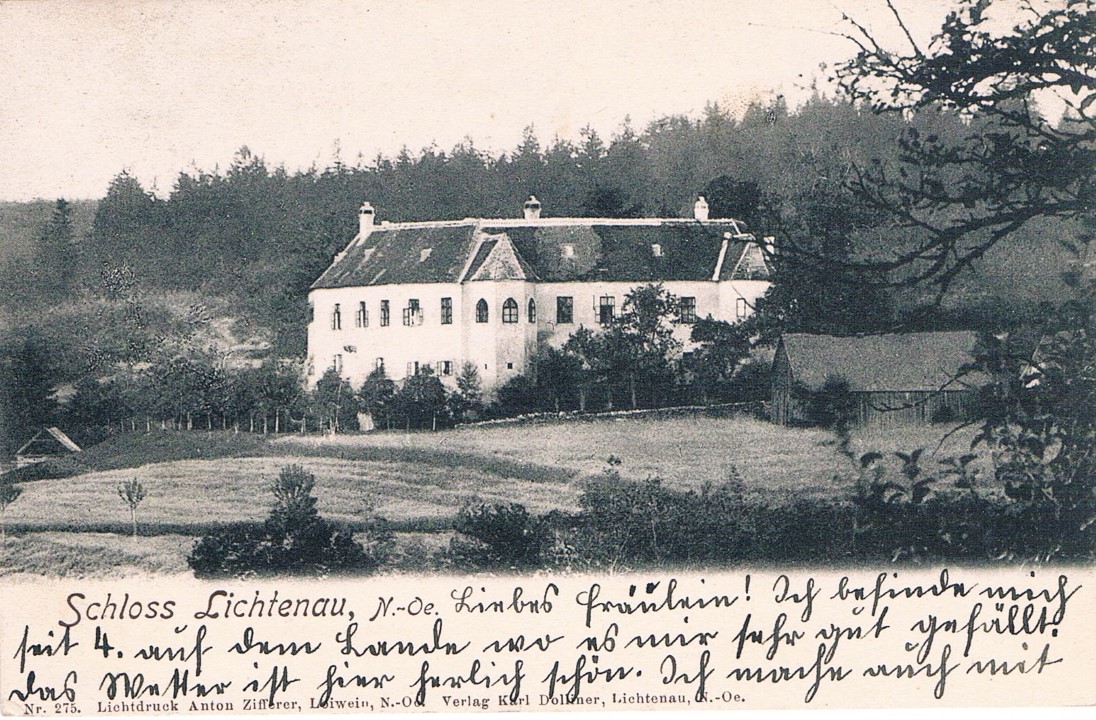 Schloss Lichtenau, N.-Oe. Liebes Fräulein! Ich befinde mich
seit 4. auf dem Lande wo es mir sehr gut gefällt.
das Wetter ist hier herlich schön. Ich mache auch mit
Nr. 275. Lichtdruck Anton Zifferer, Loiwein, N.-Oe. Verlag Karl Dollner, Lichtenau, N.-Oe.